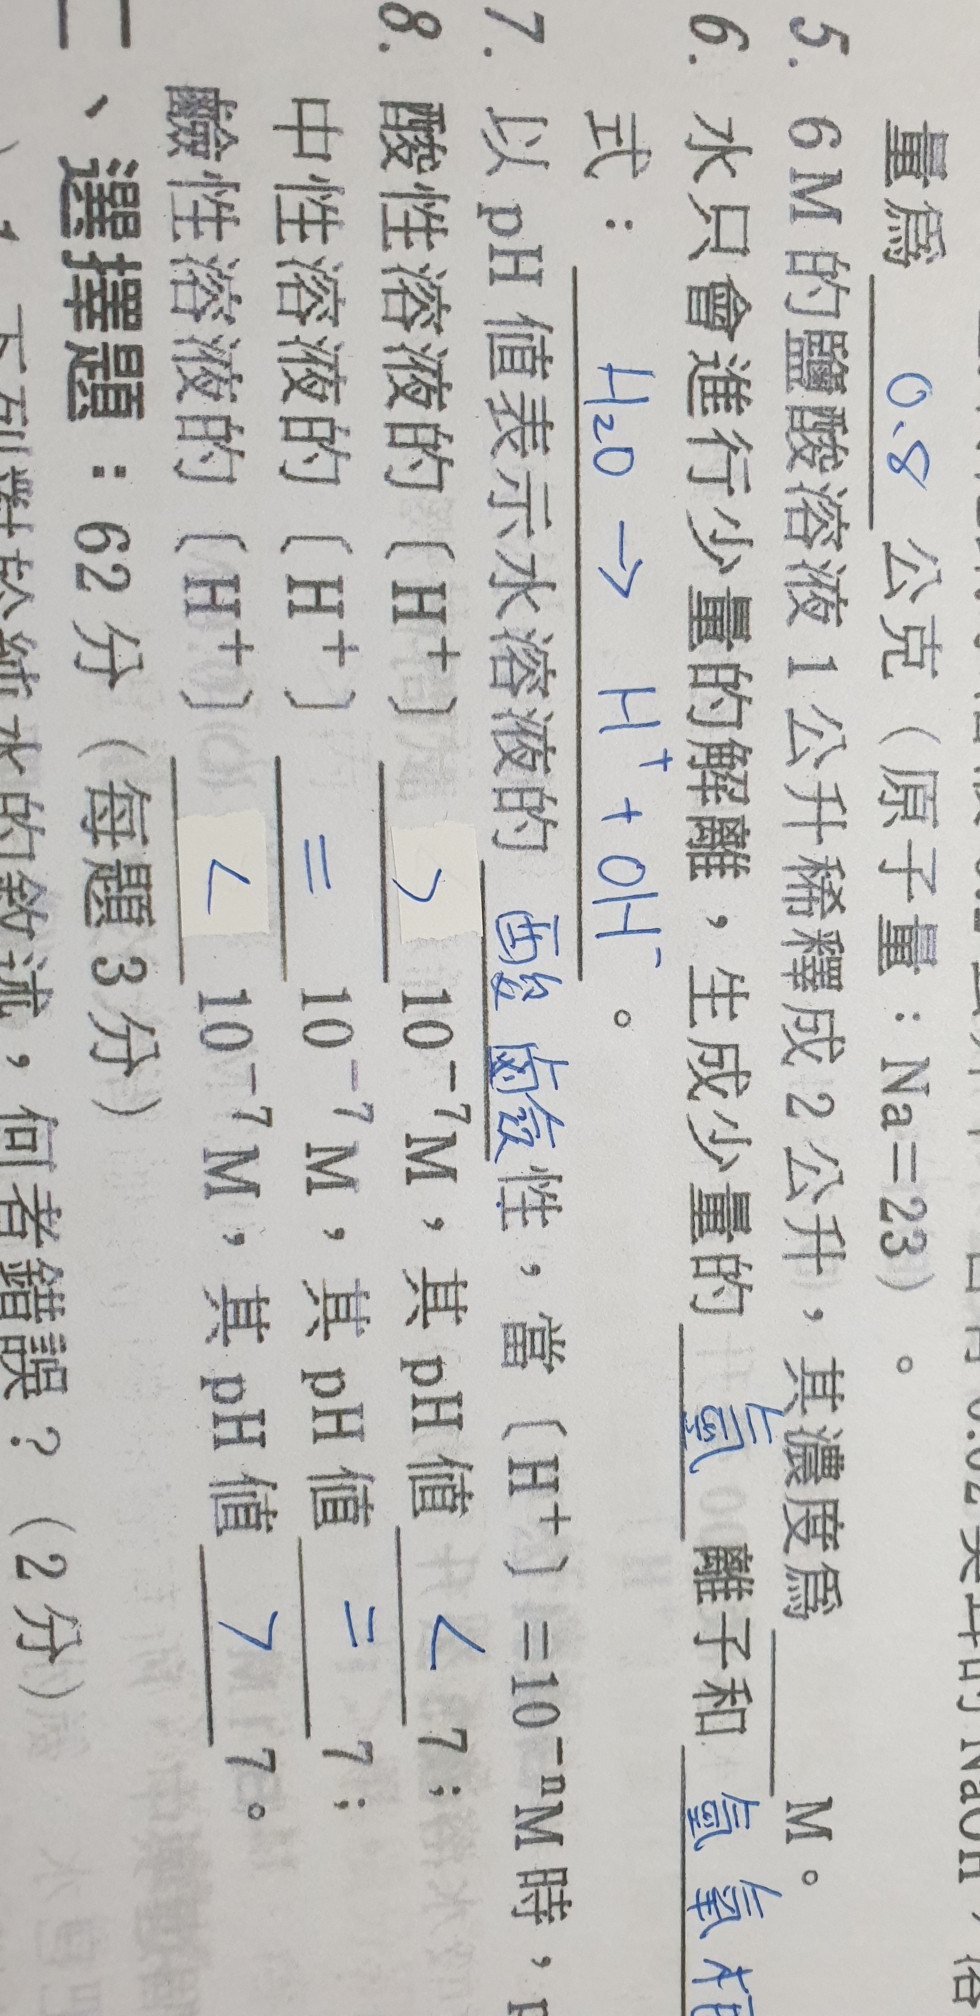 0.02 莫耳的 NaOH，溶
量為 0.8 公克（原子量：Na＝23）。
5. 6M的鹽酸溶液1公升稀釋成2公升，其濃度為 M。
6. 水只會進行少量的解離，生成少量的 氫 離子和 氫氧根
式： H₂O → H⁺ + OH⁻ 。
7. 以pH值表示水溶液的 酸鹼 性，當〔H⁺〕＝10⁻ⁿM時，p
8. 酸性溶液的〔H⁺〕 > 10⁻⁷M，其pH值 < 7；
中性溶液的〔H⁺〕 = 10⁻⁷M，其pH值 = 7；
鹼性溶液的〔H⁺〕 < 10⁻⁷M，其pH值 > 7。
二、選擇題：62分（每題3分）
下列對於純水的敘述，何者錯誤？（2分）